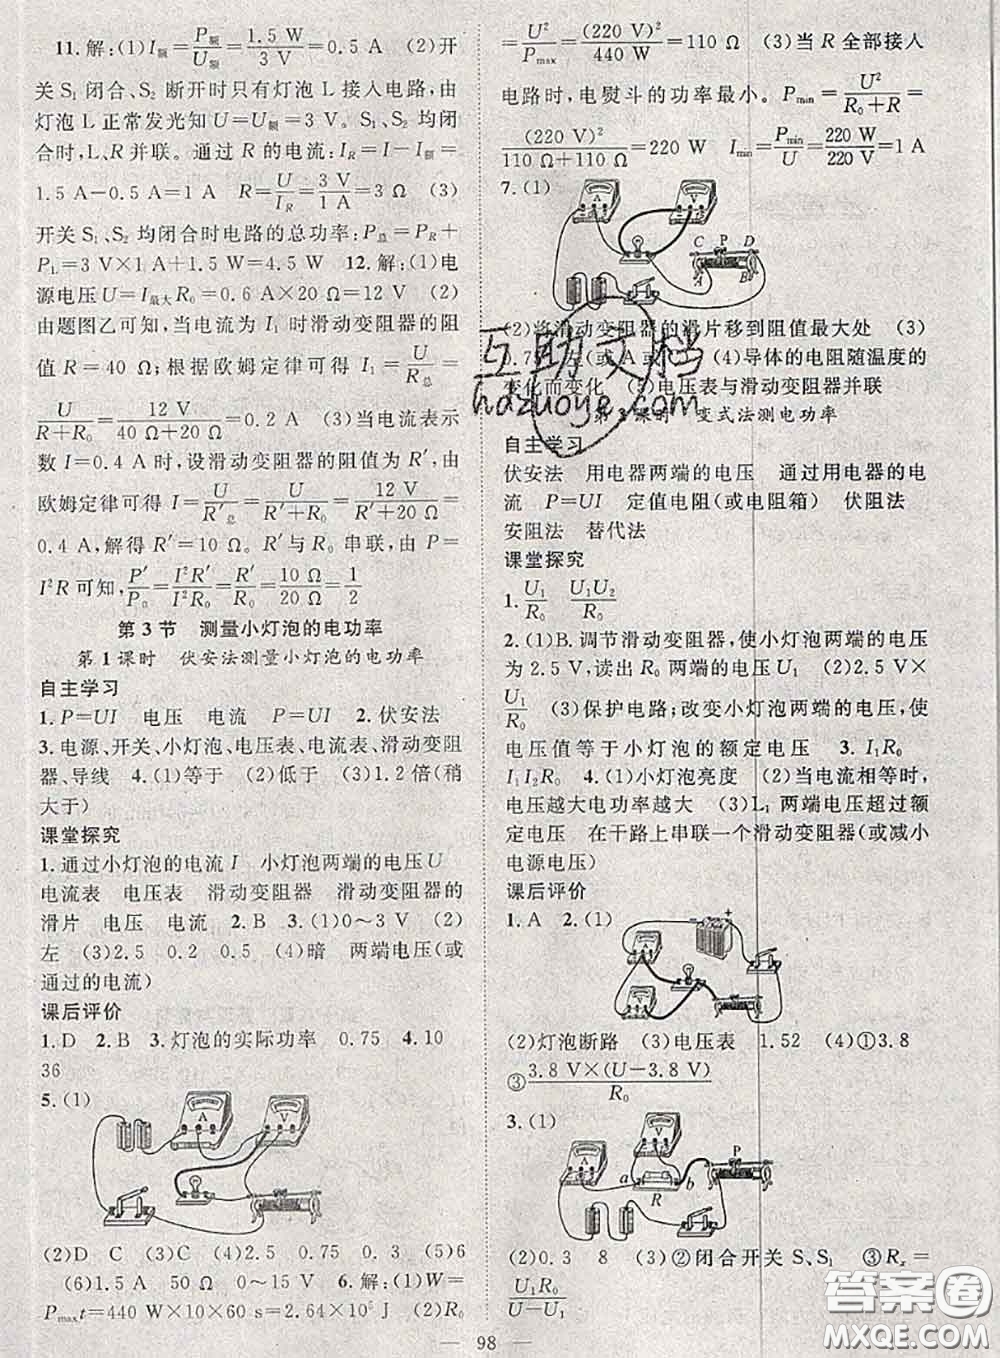 11.解:(1)I额=P额/U额=1.5 W/3 V=0.5 A (2)开
关 S₁ 闭合、S₂ 断开时只有灯泡 L 接入电路,由
灯泡 L 正常发光知 U=U额=3 V。S₁、S₂ 均闭
合时,L、R 并联。通过 R 的电流:I_R=I-I额=
1.5 A-0.5 A=1 A R=U/I_R=3 V/1 A=3 Ω (3)
开关 S₁、S₂ 均闭合时电路的总功率:P总=P_R+
P_L=3 V×1 A+1.5 W=4.5 W 12.解:(1)电
源电压 U=I最大R₀=0.6 A×20 Ω=12 V (2)
由题图乙可知,当电流为 I₁ 时滑动变阻器的阻
值为 R=40 Ω。根据欧姆定律可得 I₁=U/R总=
U/(R+R₀)=12 V/(40 Ω+20 Ω)=0.2 A (3)当电流表示
数 I=0.4 A 时,设滑动变阻器的阻值为 R′,由
欧姆定律可得 I=U/R′总=U/(R′+R₀)=12 V/(R′+20 Ω)=
0.4 A,解得 R′=10 Ω。R′与 R₀ 串联,由 P=
I²R 可知,P′/P₀=I²R′/I²R₀=R′/R₀=10 Ω/20 Ω=1/2
第 3 节 测量小灯泡的电功率
第 1 课时 伏安法测量小灯泡的电功率
自主学习
1.P=UI 电压 电流 P=UI 2.伏安法
3.电源、开关、小灯泡、电压表、电流表、滑动变阻
器、导线 4.(1)等于 (2)低于 (3)1.2 倍(稍
大于)
课堂探究
1.通过小灯泡的电流 I 小灯泡两端的电压 U
电流表 电压表 滑动变阻器 滑动变阻器的
滑片 电压 电流 2.B 3.(1)0～3 V (2)
左 (3)2.5 0.2 0.5 (4)暗 两端电压(或
通过的电流)
课后评价
1.D 2.B 3.灯泡的实际功率 0.75 4.10
36
5.(1)
A
V
(2)D C (3)C (4)2.5 0.75 0.3 (5)6
(6)1.5 A 50 Ω 0～15 V 6.解:(1)W=
P_max t=440 W×10×60 s=2.64×10⁵ J (2)R₀
=U²/P_max=(220 V)²/440 W=110 Ω (3)当 R 全部接入
电路时,电熨斗的功率最小。P_min=U²/(R₀+R)=
(220 V)²/(110 Ω+110 Ω)=220 W I_min=P_min/U=220 W/220 V=1 A
7.(1)
A
V
C P D
A B
(2)将滑动变阻器的滑片移到阻值最大处 (3)
(4)导体的电阻随温度的
变化而变化 (5)电压表与滑动变阻器并联
课时 变式法测电功率
自主学习
伏安法 用电器两端的电压 通过用电器的电
流 P=UI 定值电阻(或电阻箱) 伏阻法
安阻法 替代法
课堂探究
1.U₁/R₀ U₁U₂/R₀
2.(1)B.调节滑动变阻器,使小灯泡两端的电压
为 2.5 V,读出 R₀ 两端的电压 U₁ (2)2.5 V×
U₁/R₀ (3)保护电路;改变小灯泡两端的电压,使
电压值等于小灯泡的额定电压 3.I₁R₀
I₁I₂R₀ 4.(1)小灯泡亮度 (2)当电流相等时,
电压越大电功率越大 (3)L₁ 两端电压超过额
定电压 在干路上串联一个滑动变阻器(或减小
电源电压)
课后评价
1.A 2.(1)
- +
A
V
(2)灯泡断路 (3)电压表 1.52 (4)①3.8
③3.8 V×(U-3.8 V)/R₀
3.(1)
A
V
P
a b
R
(2)0.3 8 (3)②闭合开关 S、S₁ ③Rₓ=
U₁R₀/(U-U₁)
98
互助文档
hdzuoye.com
答案圈
MXQE.COM